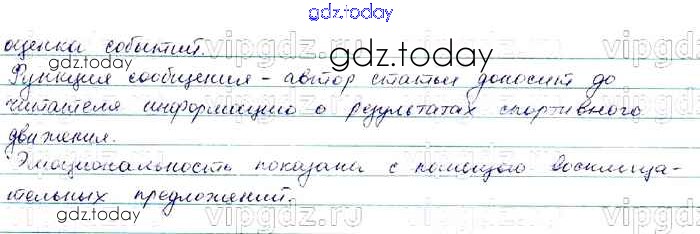 gdz.today
оценка событий.
gdz.today
Функция сообщения - автор статьи доносит до
читателя информацию о результатах спортивного
движения.
Эмоциональность показана с помощью восклица-
тельных предложений.
gdz.today
vipgdz.ru